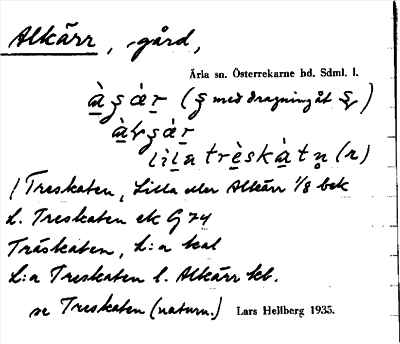 Alkärr, -gård,
Ärla sn. Österrekarne hd. Sdml. l.
àʂár (ʂ med dragning åt ʂ)
àʂár
lila trèskàtn̥ (n)
/Treskaten, Lilla eller Alkärr 1/8 bek
L. Treskaten ek G 74
Träskaten, L:a kal
L:a Treskaten l. Alkärr kb.
se Treskaten (naturn.) Lars Hellberg 1935.